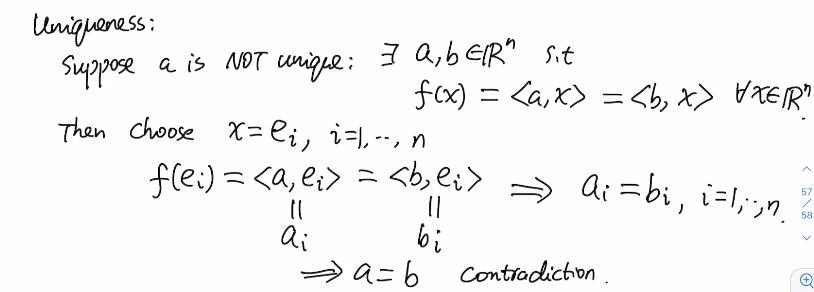 Uniqueness:
Suppose a is NOT unique: ∃ a,b ∈ ℝⁿ s.t
f(x) = <a,x> = <b,x> ∀x∈ℝⁿ.
Then choose x=eᵢ, i=1,..,n
f(eᵢ) = <a,eᵢ> = <b,eᵢ> ⟹ aᵢ=bᵢ, i=1,..,n.
|| ||
aᵢ bᵢ
⟹ a=b contradiction.
57
/
58